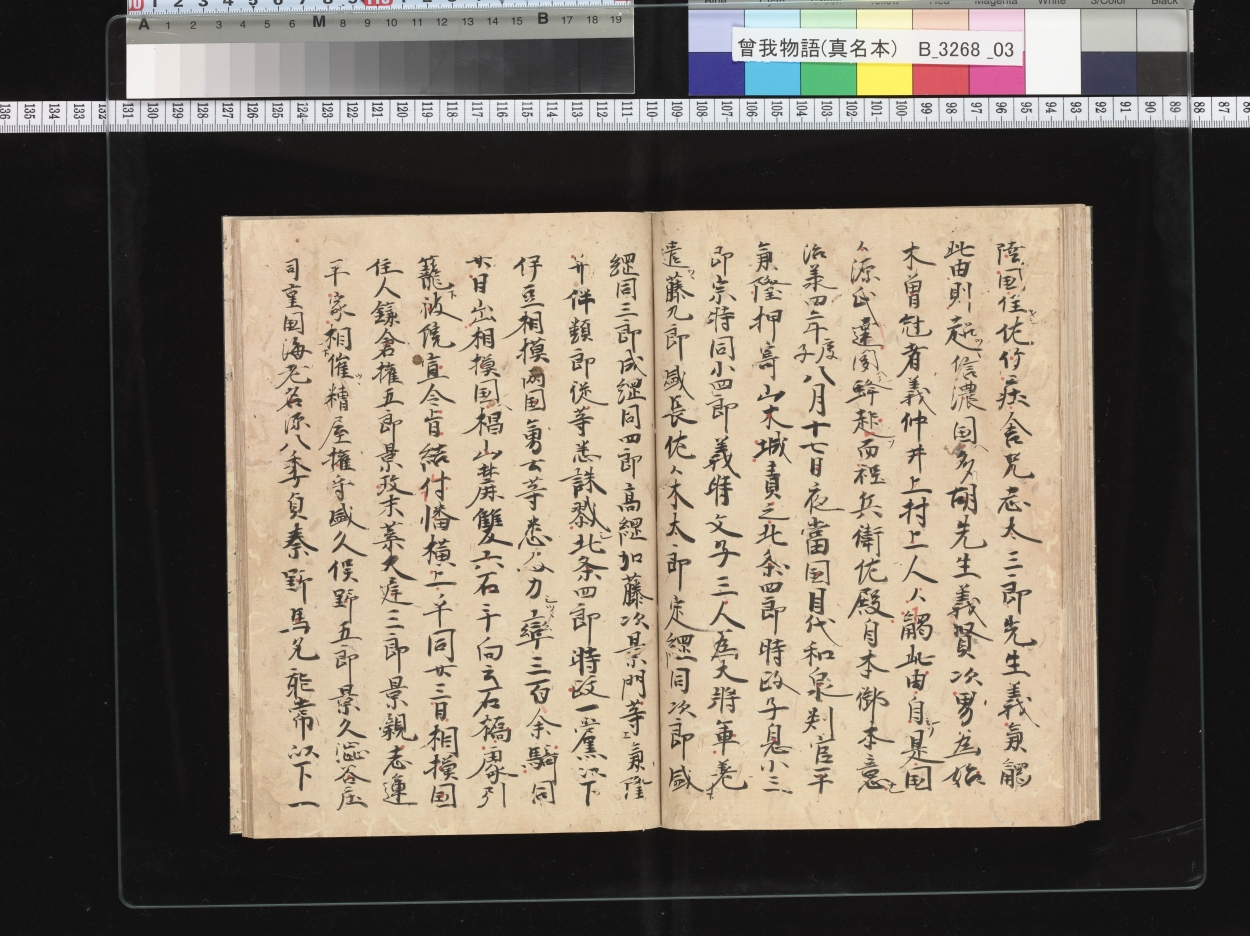 曾我物語(真名本) B_3268_03
陸国住佐竹
此由則越信濃国多胡先生義賢次男為始
木曽冠者義仲井上村上人々觸此由自是国
々源氏違国蜂起而程兵衛佐殿自本御本意
治業四年庚子八月十七日夜當国目代和泉判官平
兼隆押寄山木城責之北条四郎時政子息小三
郎宗時同小四郎義時父子三人為大将軍
遣藤九郎盛長佐々木太郎定綱同次郎盛
綱同三郎成綱同四郎高綱加藤次景門等兼隆
并伴類郎従等悉誅戮北条四郎時政一黨以下
伊豆相摸両国勇士等悉合力率三百余騎同
廿日出相摸国椙山麓雙六石千向云石橋處引
籠被僥宣令旨結付幡横上平同廿三日相摸国
住人鎌倉権五郎景政末葉大庭三郎景親志運
平家相催糟屋権守盛久俣野五郎景久澁谷庄
司重国海老名源八季貞秦野馬允能常以下一